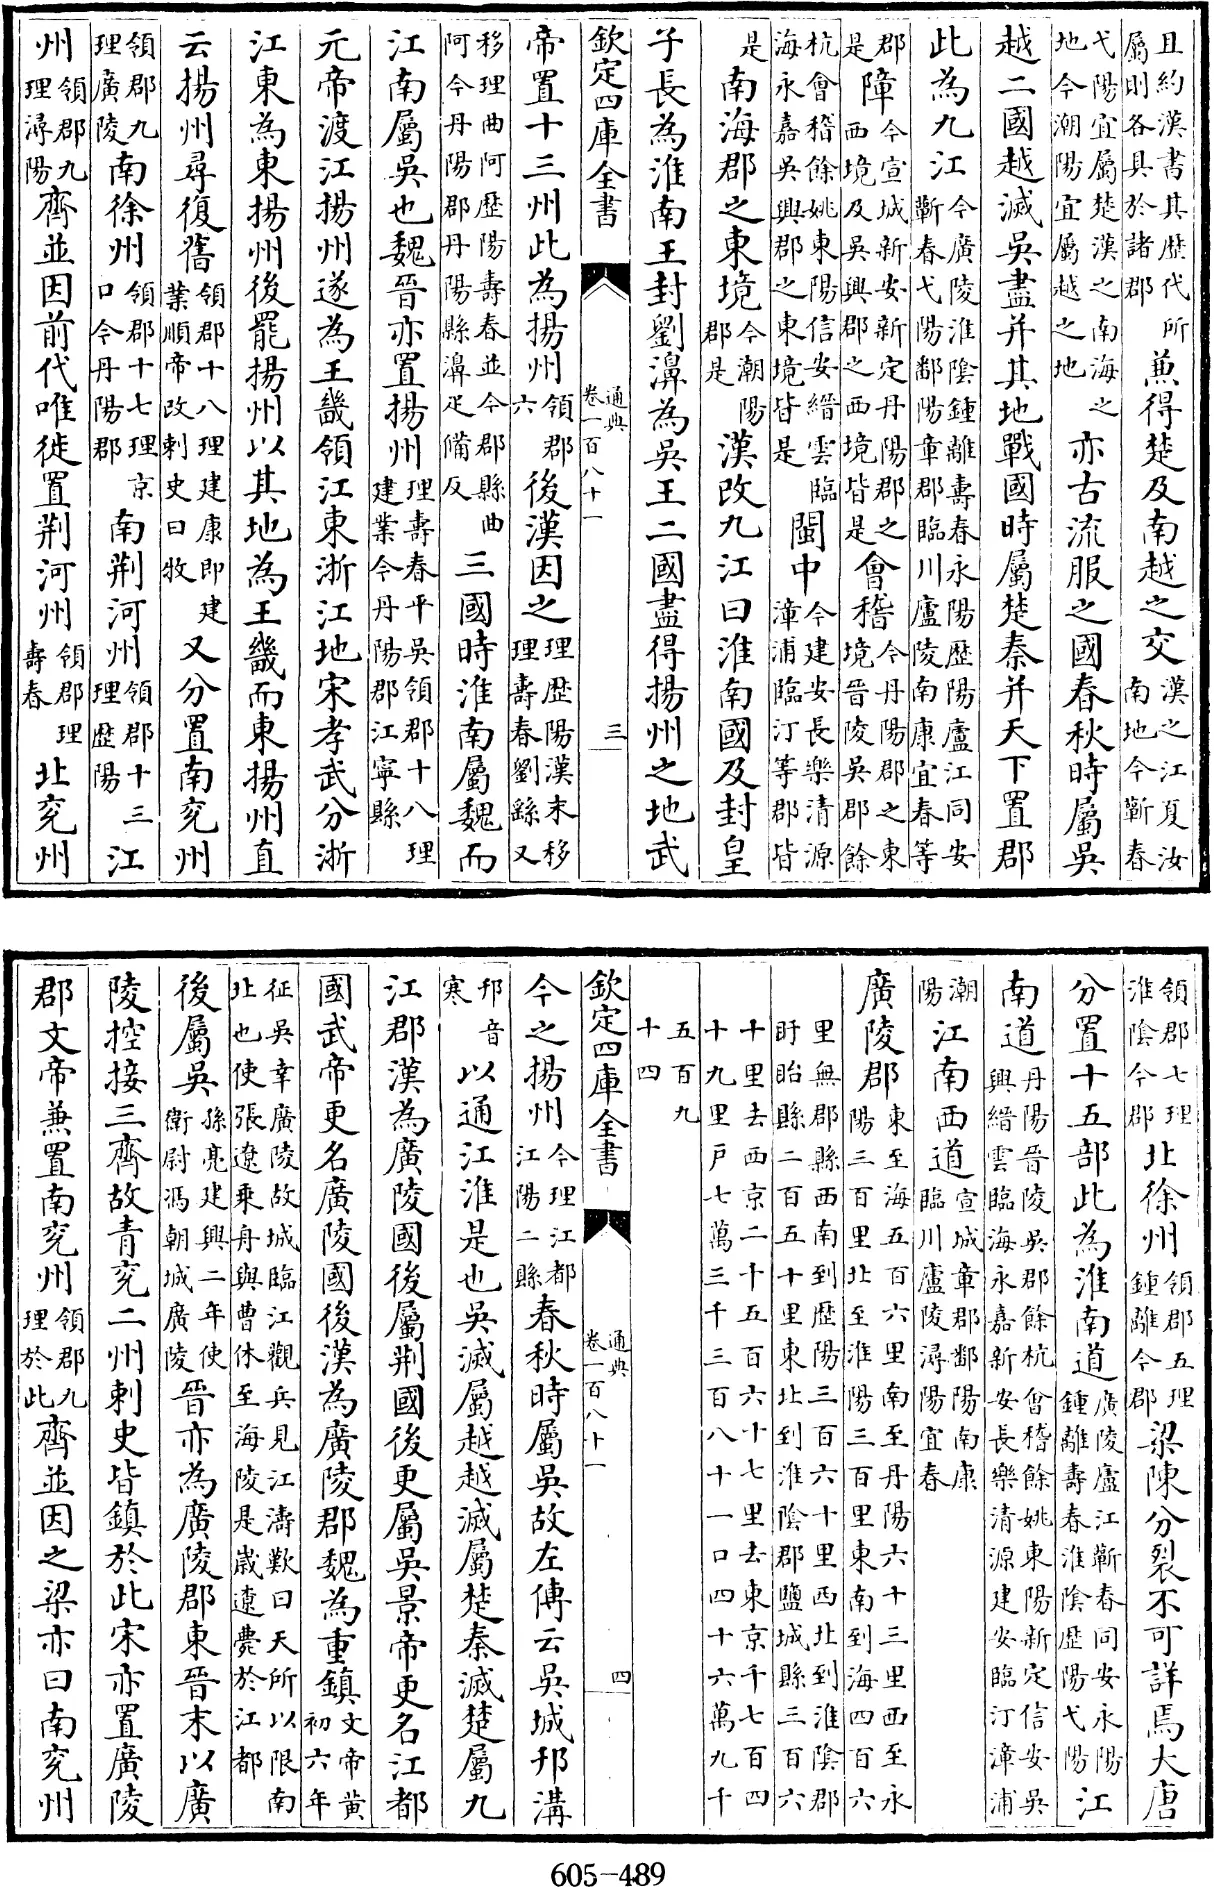 且約漢書其歴代所屬則各具於諸郡兼得楚及南越之交漢之江夏汝南地今蘄春
弋陽宜屬楚漢之南海之地今潮陽宜屬越之地亦古流服之國春秋時屬吳
越二國越滅吳盡并其地戰國時屬楚秦并天下置郡
此為九江今廣陵淮陰鍾離壽春永陽歴陽廬江同安蘄春弋陽鄱陽章郡臨川廬陵南康宜春等
郡是障今宣城新安新定丹陽郡之西境及吳興郡之西境皆是會稽今丹陽郡之東境晉陵吳郡餘
杭會稽餘姚東陽信安縉雲臨海永嘉吳興郡之東境皆是閩中今建安長樂清源漳浦臨汀等郡皆
是南海郡之東境今潮陽郡是漢改九江曰淮南國及封皇
子長為淮南王封劉濞為吳王二國盡得揚州之地武
欽定四庫全書 通典卷一百八十一 三
帝置十三州此為揚州領郡六後漢因之理歴陽漢末移理壽春劉繇又
移理曲阿歴陽壽春並今郡縣曲阿今丹陽郡丹陽縣濞疋備反三國時淮南屬魏而
江南屬吳也魏晉亦置揚州理壽春平吳領郡十八理建業今丹陽郡江寧縣
元帝渡江揚州遂為王畿領江東浙江地宋孝武分浙
江東為東揚州後罷揚州以其地為王畿而東揚州直
云揚州尋復舊領郡十八理建康即建業順帝改刺史曰牧又分置南兖州
領郡九理廣陵南徐州領郡十七理京口今丹陽郡南荆河州領郡十三理歴陽江
州領郡九理潯陽齊並因前代唯徙置荆河州領郡理壽春北兖州
領郡七理淮陰今郡北徐州領郡五理鍾離今郡梁陳分裂不可詳焉大唐
分置十五部此為淮南道廣陵廬江蘄春同安永陽鍾離壽春淮陰歴陽弋陽江
南道丹陽晉陵吳郡餘杭會稽餘姚東陽新定信安吳興縉雲臨海永嘉新安長樂清源建安臨汀漳浦
潮陽江南西道宣城章郡鄱陽南康臨川廬陵潯陽宜春
廣陵郡東至海五百六里南至丹陽六十三里西至永陽三百里北至淮陽三百里東南到海四百六
里無郡縣西南到歴陽三百六十里西北到淮陰郡盱眙縣二百五十里東北到淮陰郡鹽城縣三百六
十里去西京二十五百六十七里去東京千七百四十九里戸七萬三千三百八十一口四十六萬九千
五百九十四
欽定四庫全書 通典卷一百八十一 四
今之揚州今理江都江陽二縣春秋時屬吳故左傳云吳城邗溝
邗音寒以通江淮是也吳滅屬越越滅屬楚秦滅楚屬九
江郡漢為廣陵國後屬荆國後更屬吳景帝更名江都
國武帝更名廣陵國後漢為廣陵郡魏為重鎮文帝黄初六年
征吳幸廣陵故城臨江觀兵見江濤歎曰天所以限南北也使張遼乘舟與曹休至海陵是歲遼薨於江都
後屬吳孫亮建興二年使衛尉馮朝城廣陵晉亦為廣陵郡東晉末以廣
陵控接三齊故青兖二州刺史皆鎮於此宋亦置廣陵
郡文帝兼置南兖州領郡九理於此齊並因之梁亦曰南兖州
605-489